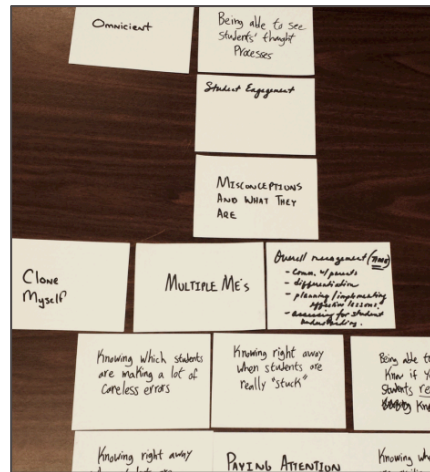 Omnicient
Being able to see
students' thought
Processes
Student Engagement
MISCONCEPTIONS
AND WHAT THEY
ARE
Clone
Myself
MULTIPLE ME'S
Overall management (TIME)
- comm. w/ parents
- differentiation
- planning/implementing
effective lessons
- assessing for student
understanding.
Knowing which students
are making a lot of
careless errors
Knowing right away
when students are
really "stuck"
Being able to
know if
students re
Kn
Knowing right away
PAYING ATTENTION
Knowing